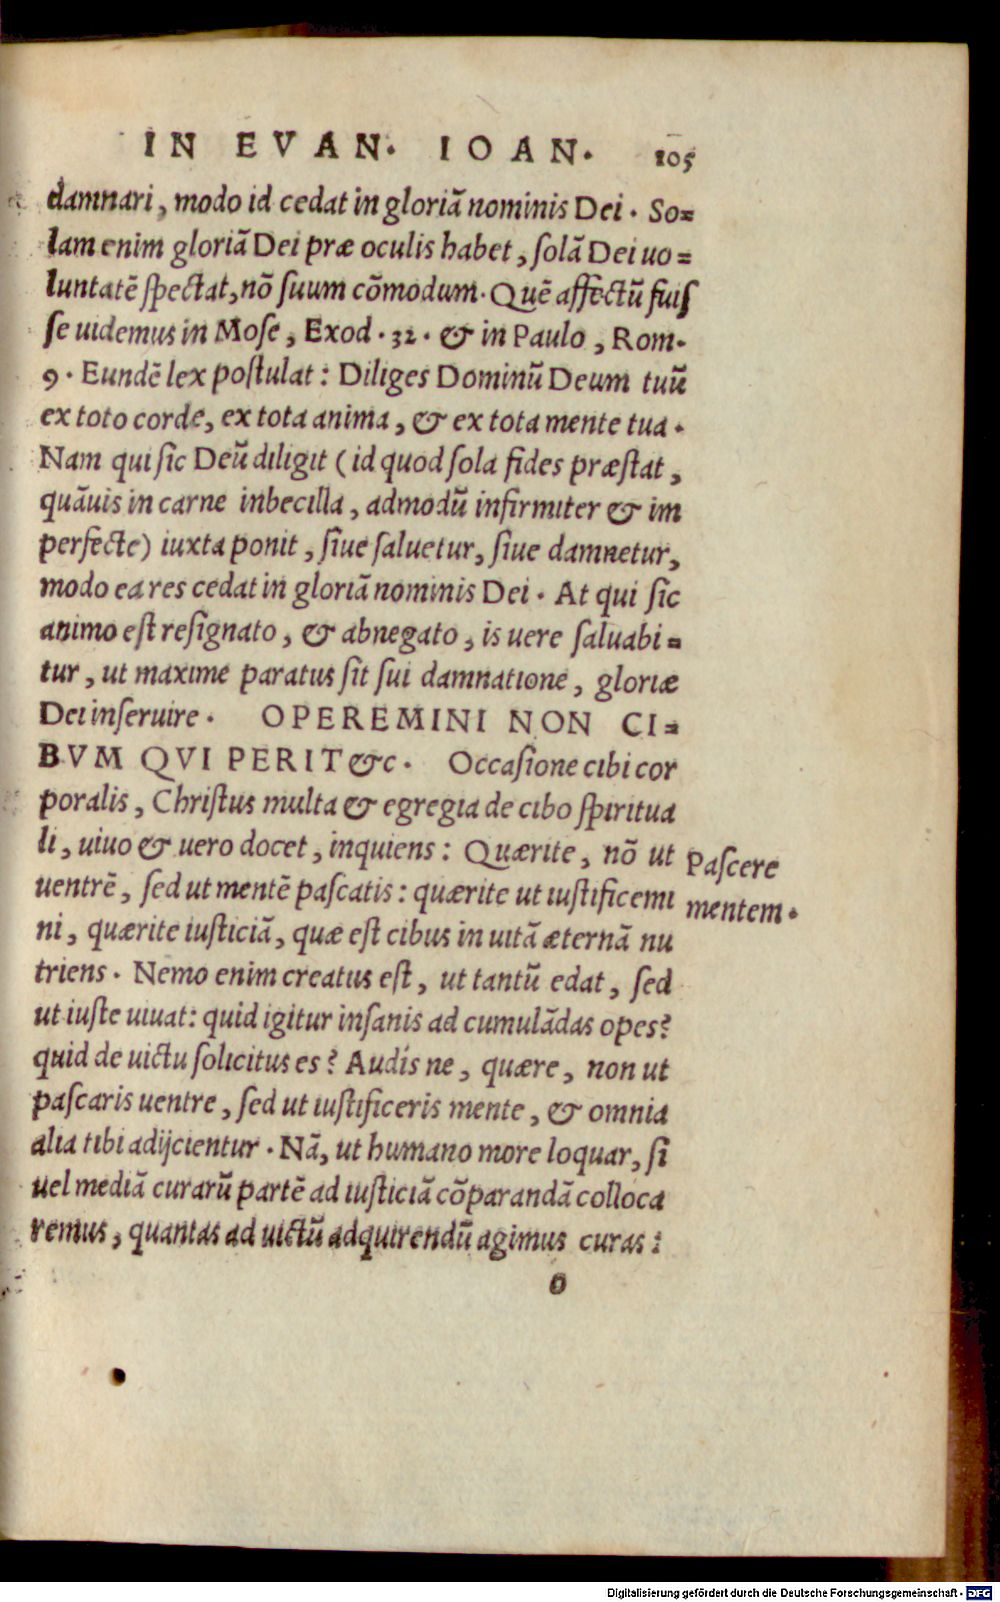 IN EVAN. IOAN. 105
damnari, modo id cedat in gloriā nominis Dei. So=
lam enim gloriā Dei præ oculis habet, solā Dei uo=
luntatē spectat, nō suum cōmodum. Quē affectū fuis
se uidemus in Mose, Exod. 32. & in Paulo, Rom.
9. Eundē lex postulat: Diliges Dominū Deum tuū
ex toto corde, ex tota anima, & ex tota mente tua.
Nam qui sic Deū diligit (id quod sola fides præstat,
quāuis in carne inbecilla, admodū infirmiter & im
perfecte) iuxta ponit, siue saluetur, siue damnetur,
modo ea res cedat in gloriā nominis Dei. At qui sic
animo est resignato, & abnegato, is uere saluabi=
tur, ut maxime paratus sit sui damnatione, gloriæ
Dei inseruire. OPEREMINI NON CI=
BVM QVI PERIT &c. Occasione cibi cor
poralis, Christus multa & egregia de cibo spiritua
li, uiuo & uero docet, inquiens: Quærite, nō ut
uentrē, sed ut mentē pascatis: quærite ut iustificemi
ni, quærite iusticiā, quæ est cibus in uitā æternā nu
triens. Nemo enim creatus est, ut tantū edat, sed
ut iuste uiuat: quid igitur insanis ad cumulādas opes?
quid de uictu solicitus es? Audis ne, quære, non ut
pascaris uentre, sed ut iustificeris mente, & omnia
alia tibi adijcientur. Nā, ut humano more loquar, si
uel mediā curarū partē ad iusticiā cōparandā colloca
remus, quantas ad uictū adquirendū agimus curas:
o
Pascere
mentem.
Digitalisierung gefördert durch die Deutsche Forschungsgemeinschaft - DFG